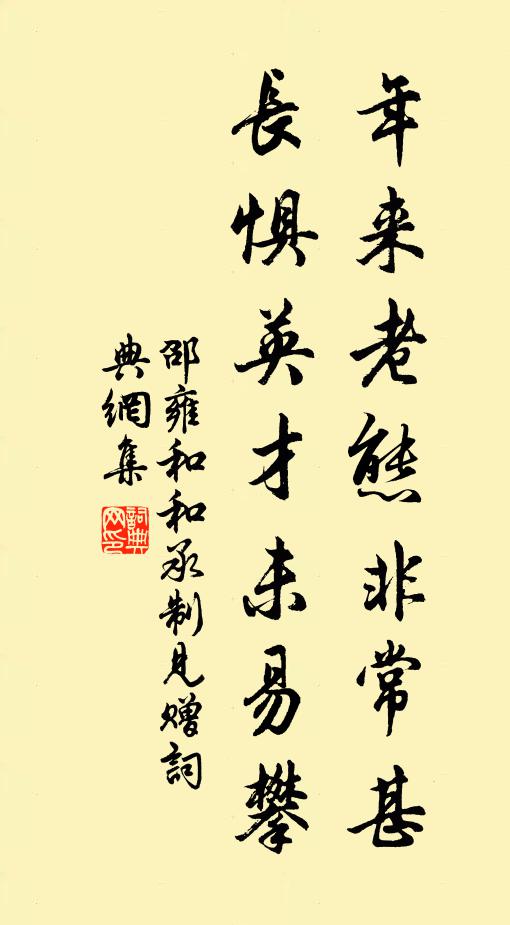 年来老態非常甚
長惧英才未易攀
邵雍和和承制見贈詞
典網集
詞典
网印